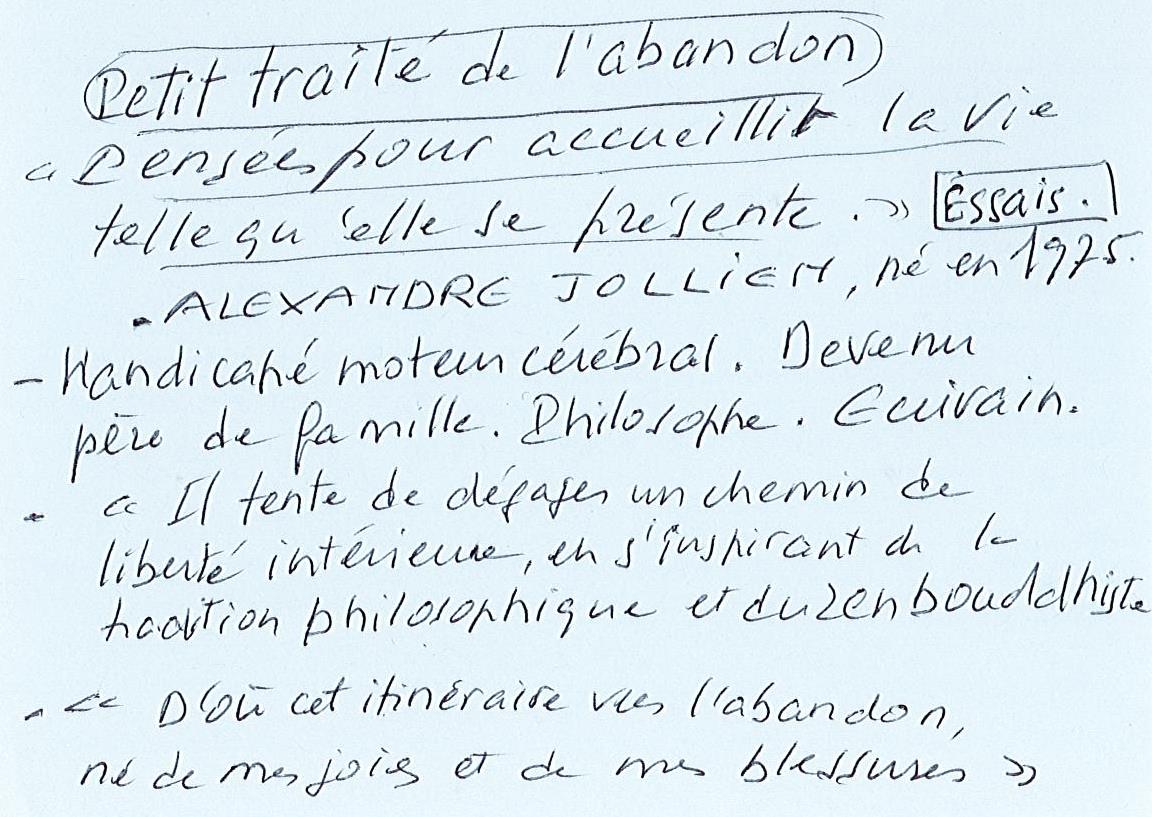 Petit traité de l'abandon
« Pensées pour accueillir la vie
telle qu'elle se présente. » Essais.
. ALEXANDRE JOLLIEN, né en 1975.
- Handicapé moteur cérébral. Devenu
père de famille. Philosophe. Ecrivain.
. « Il tente de dégager un chemin de
liberté intérieure, en s'inspirant de la
tradition philosophique et du zen bouddhiste
. « D'où cet itinéraire vers l'abandon,
né de mes joies et de mes blessures »